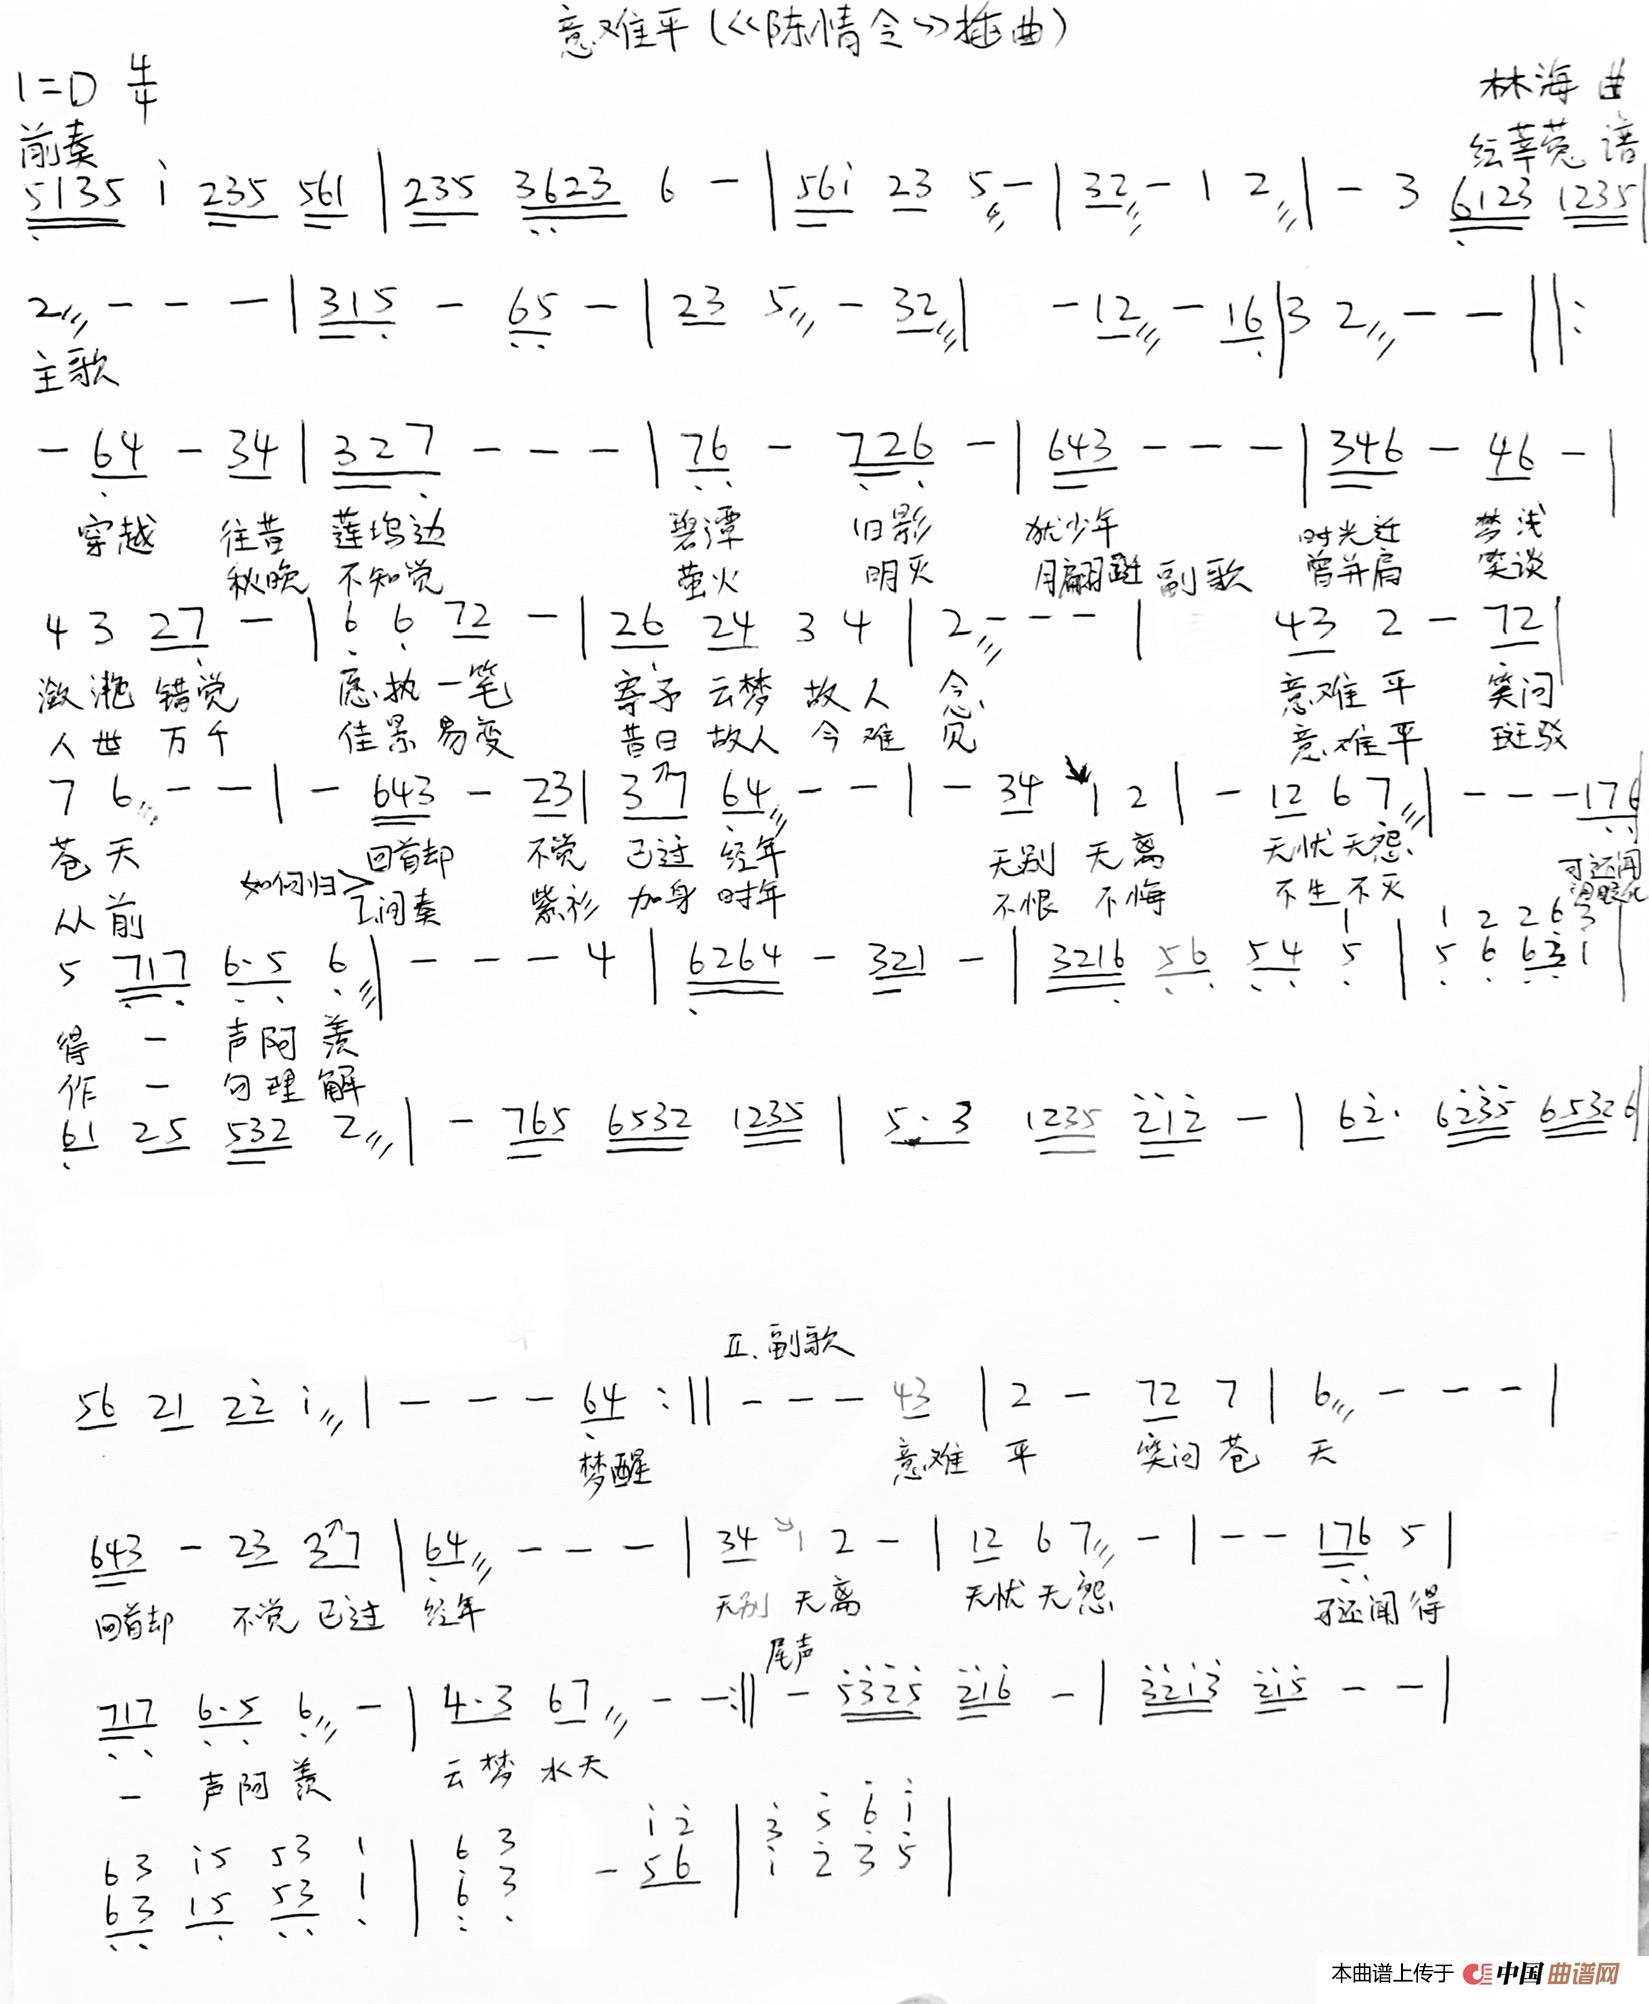 意难平(《陈情令》插曲)
1=D 4/4
林海 曲
前奏
绘莘菀 谱
5135 i 235 561 | 235 3623 6 - | 56i 23 5 - | 32 - 1 2 | - 3 6123 1235 |
2 - - - | 315 - 65 - | 23 5 - 32 | - 12 - 16 | 3 2 - - ||:
主歌
- 64 - 34 | 327 - - - | 76 - 726 - | 643 - - - | 346 - 46 - |
穿越 往昔 莲坞边 碧潭 旧影 犹少年 时光近 梦浅
秋晚 不知觉 萤火 明灭 月翩跹 副歌 曾并肩 笑谈
4 3 27 - | 6 6 72 - | 26 24 3 4 | 2 - - - | 43 2 - 72 |
潋滟 错觉 愿执一笔 寄予 云梦 故人 念 意难平 笑问
人世 万千 佳景易变 昔日 故人 今难 见 意难平 斑驳
7 6 - - | - 643 - 23 | 37 64 - - | - 34 1 2 | - 12 6 7 | - - - 176
苍天 回首却 不觉 已过 经年 无别 无离 无忧 无怨 可还闻
从前 如何归> I间奏 紫衫 加身 时年 不恨 不悔 不生 不灭
1 1 2 2 6 3
5 717 6·5 6 | - - - 4 | 6264 - 321 - | 3216 56 54 5 | 5 6 63 1 |
得 一 声阿 羡
作 一 句理 解
61 25 532 2 | - 765 6532 1235 | 5·3 1235 212 - | 62· 6235 65326 |
II.副歌
56 21 22 i | - - - 64 :|| - - - 43 | 2 - 72 7 | 6 - - - |
梦醒 意难 平 笑问 苍 天
643 - 23 37 | 64 - - - | 34 1 2 - | 12 6 7 - | - - 176 5 |
回首却 不觉 已过 经年 无别 无离 无忧 无怨 可还闻 得
尾声
717 6·5 6 - | 4·3 67 - - :|| - 5325 216 - | 3213 215 - - |
一 声阿 羡 云梦 水天
63 i5 53 1 | 6 3 i 2 | 3 5 6 i |
63 15 53 1 | 6 3 - 56 | i 2 3 5 |
本曲谱上传于 中国曲谱网